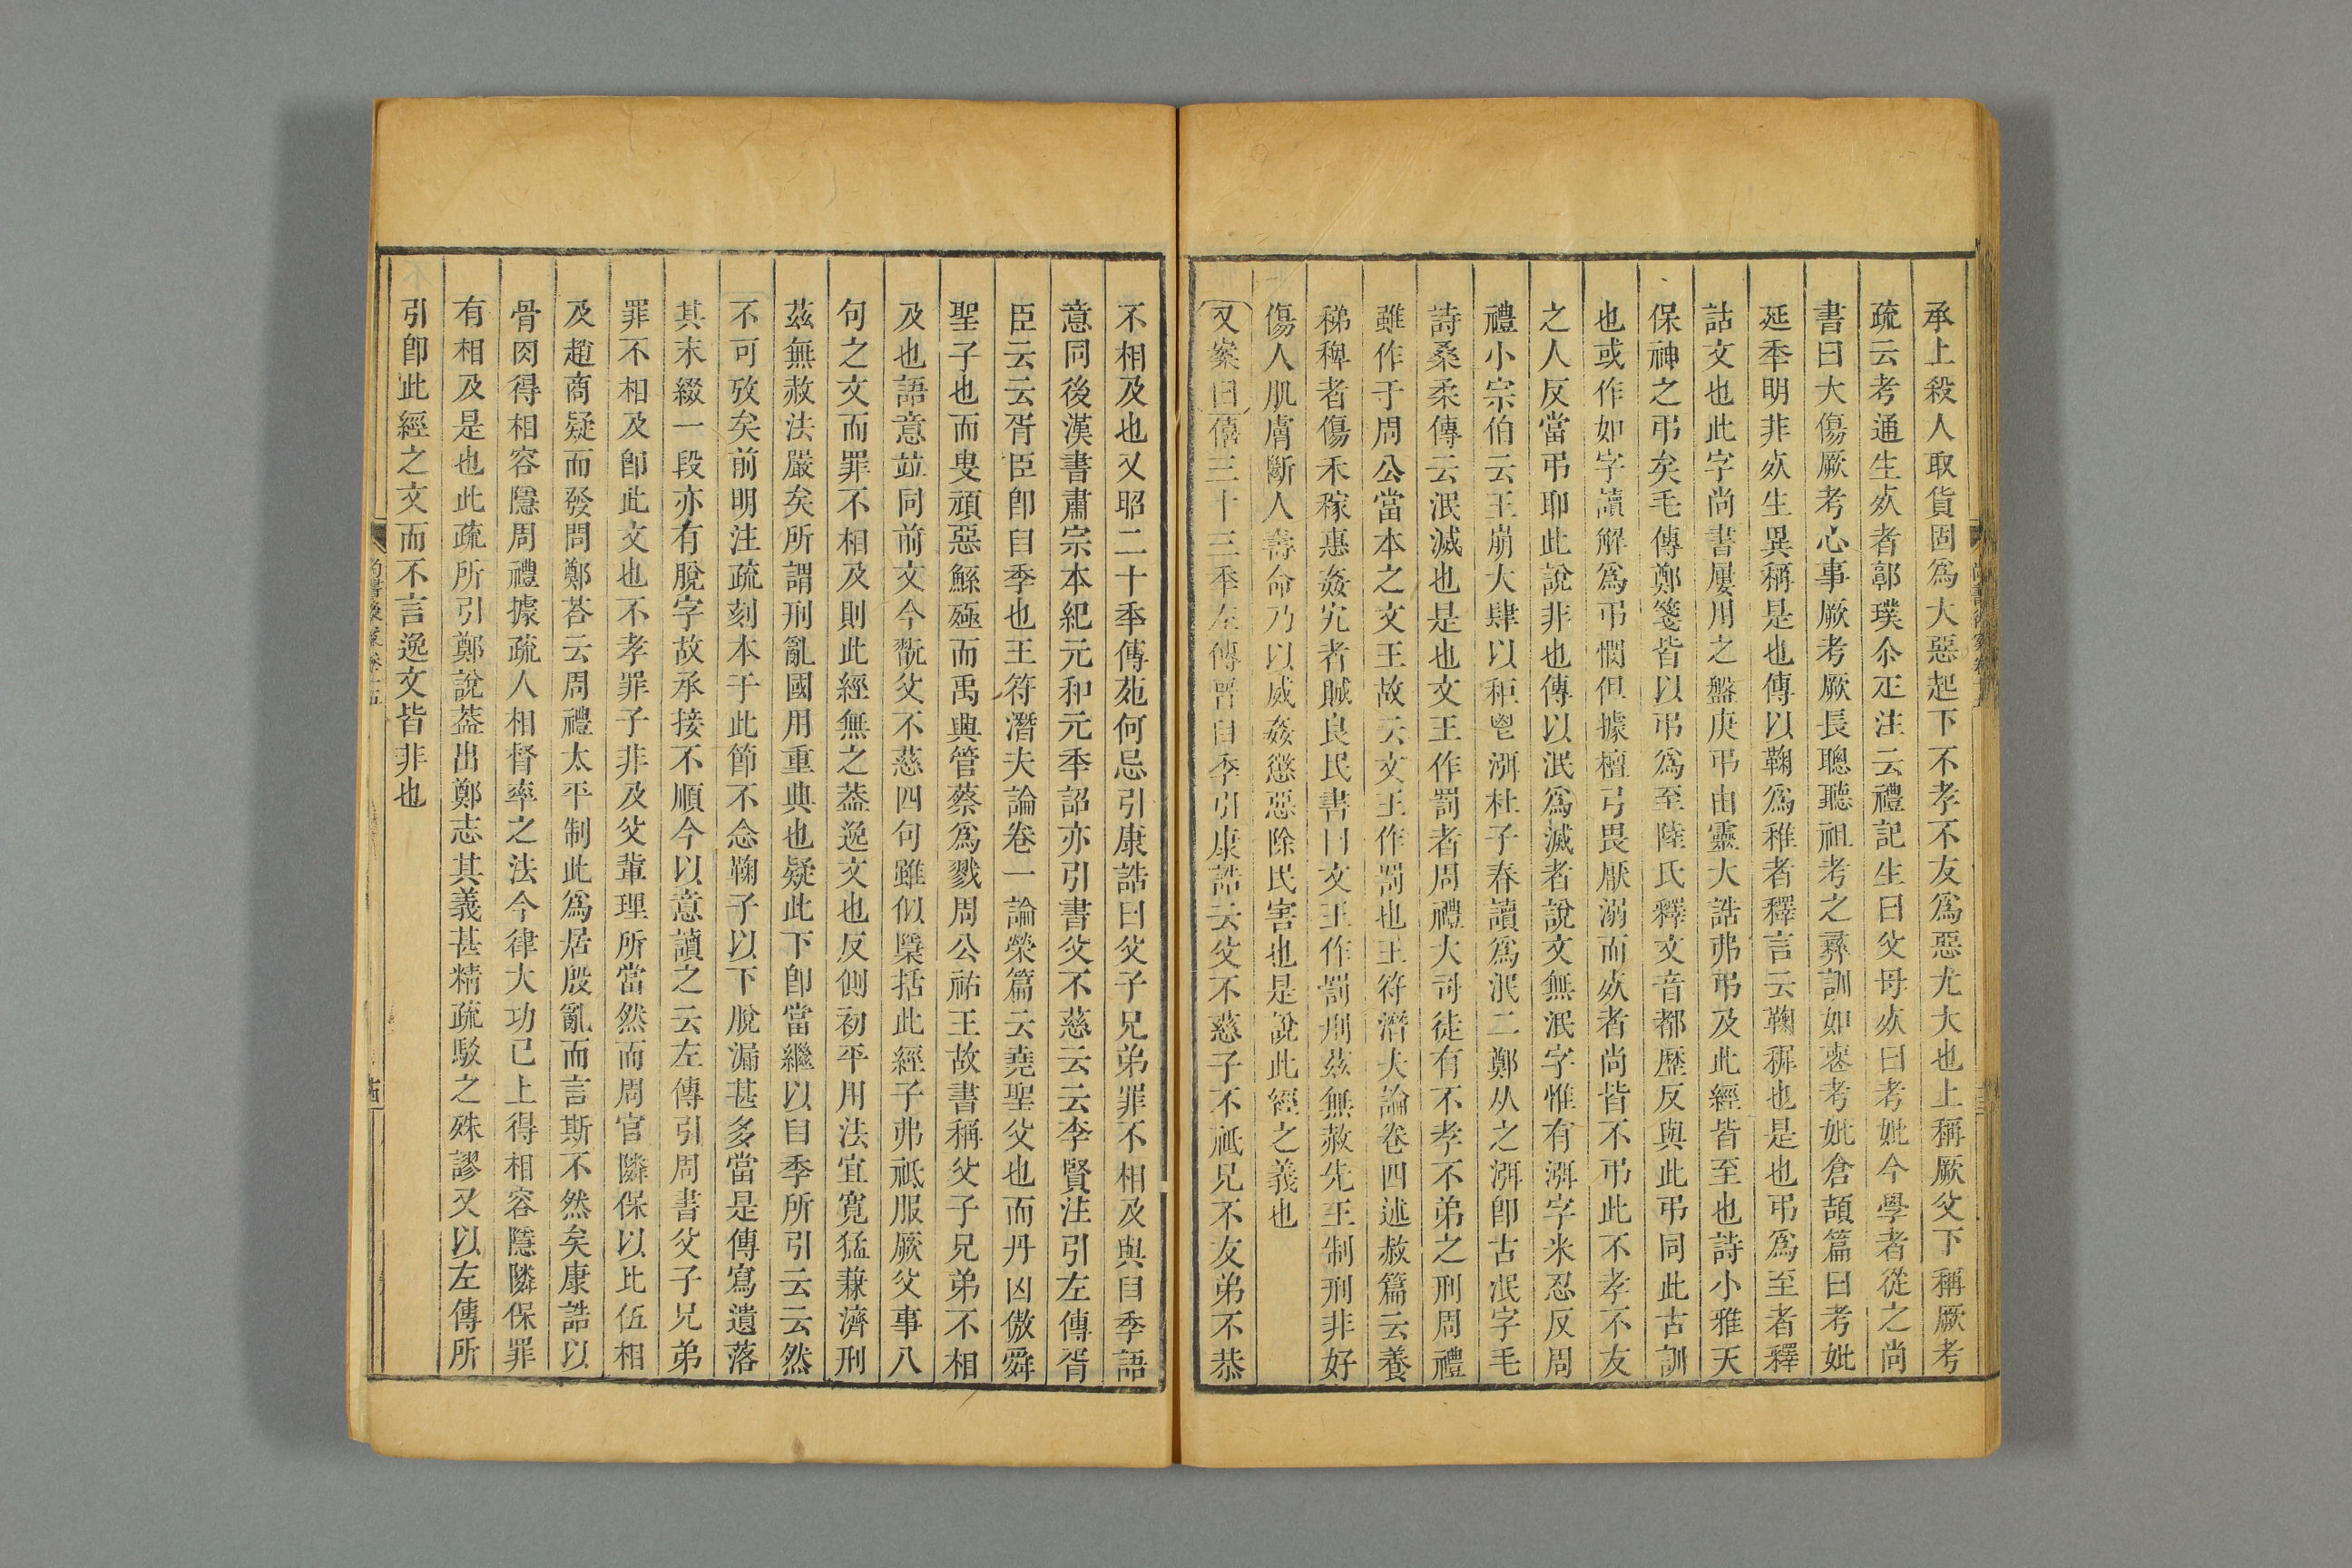 承上殺人取貨固爲大惡起下不孝不友爲惡尤大也上稱厥父下稱厥考
疏云考通生㱙者郭璞尒疋注云禮記生曰父母㱙曰考妣今學者從之尚
書曰大傷厥考心事厥考厥長聰聽祖考之彞訓如喪考妣倉頡篇曰考妣
延季明非㱙生異稱是也傳以鞠爲稚者釋言云鞠穉也是也弔爲至者釋
詁文也此字尚書屢用之盤庚弔由靈大誥弗弔及此經皆至也詩小雅天
保神之弔矣毛傳鄭箋皆以弔爲至陸氏釋文音都歷反與此弔同此古訓
也或作如字讀解爲弔憫但據檀弓畏厭溺而㱙者尚皆不弔此不孝不友
之人反當弔耶此說非也傳以泯爲滅者說文無泯字惟有渳字米忍反周
禮小宗伯云王崩大肆以秬鬯渳杜子春讀爲泯二鄭从之渳卽古泯字毛
詩桑柔傳云泯滅也是也文王作罰者周禮大司徒有不孝不弟之刑周禮
雖作于周公當本之文王故云文王作罰也王符潛夫論卷四述赦篇云養
稊稗者傷禾稼惠姦宄者賊良民書曰文王作罰刑茲無赦先王制刑非好
傷人肌膚斷人壽命乃以威姦懲惡除民害也是說此經之義也
又案曰僖三十三季左傳晉臼季引康誥云父不慈子不祗兄不友弟不恭
不相及也又昭二十季傳苑何忌引康誥曰父子兄弟罪不相及與臼季語
意同後漢書肅宗本紀元和元季詔亦引書父不慈云云李賢注引左傳胥
臣云云胥臣卽臼季也王符潛夫論卷一論榮篇云堯聖父也而丹凶傲舜
聖子也而叟頑惡鯀殛而禹興管蔡爲戮周公祐王故書稱父子兄弟不相
及也語意竝同前文今翫父不慈四句雖似櫽括此經子弗祗服厥父事八
句之文而罪不相及則此經無之葢逸文也反側初平用法宜寬猛兼濟刑
茲無赦法嚴矣所謂刑亂國用重典也疑此下卽當繼以臼季所引云云然
不可攷矣前明注疏刻本于此節不念鞠子以下脫漏甚多當是傳寫遺落
其末綴一段亦有脫字故承接不順今以意讀之云左傳引周書父子兄弟
罪不相及卽此文也不孝罪子非及父輩理所當然而周官隣保以比伍相
及趙商疑而發問鄭荅云周禮太平制此爲居殷亂而言斯不然矣康誥以
骨肉得相容隱周禮據疏人相督率之法今律大功已上得相容隱隣保罪
有相及是也此疏所引鄭說葢出鄭志其義甚精疏駁之殊謬又以左傳所
引卽此經之文而不言逸文皆非也